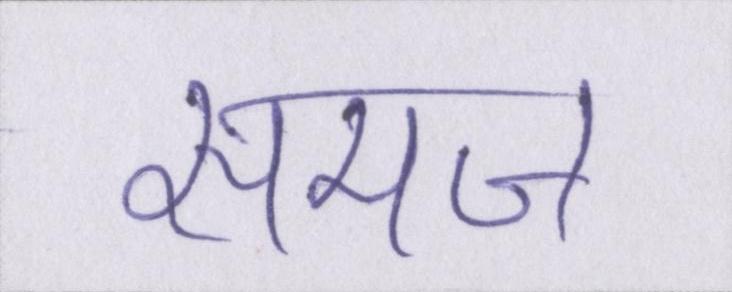 समज